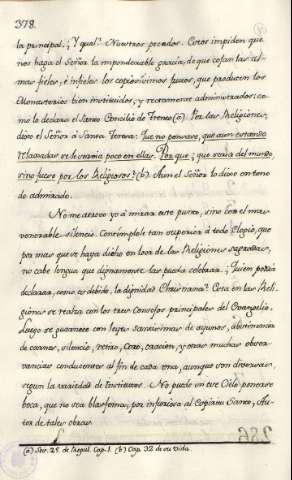 378.
la principal. ¿Y qual? Nuestros pecados. Estos impiden que
nos haga el Señor la imponderable gracia, de que cojan las al-
mas fieles, è infieles los copiosisimos frutos, que producen los
Monasterios bien instituidos, y rectamente administrados: co-
mo lo declara el Santo Concilio de Trento (a). Por las Religiones,
dice el Señor à Santa Teresa: Que no pensase, que aun estando
relaxadas se le servia poco en ellas. Por que ¿que seria del mundo,
sino fuera por los Religiosos? (b) Aun el Señor lo dice en tono
de admirado.
No me atrevo yo à mirar este punto, sino con el mas
venerable silencio. Contemplole tan superior à todo elogio, que
por mas que se haya dicho en loor de las Religiones sagradas,
no cabe lengua que dignamente las pueda celebrar. ¿Quien podrà
declarar, como es debido, la dignidad Christiana? Esta en las Reli-
giones se realza con los tres Consejos principales del Evangelio.
Luego se guarnece con leyes santisimas de ayunos, abstinencia
de carnes, silencio, retiro, Coro, oracion, y otras muchas obser-
vancias conducentes al fin de cada una, aunque son diversas,
segun la variedad de Institutos. No puede en este Cielo ponerse
boca, que no sea blasfema, por injuriosa al Espiritu Santo, Au-
tor de tales obras.
(a) Ses. 25. de Regul. Cap. 1. (b) Cap. 32. de su Vida.